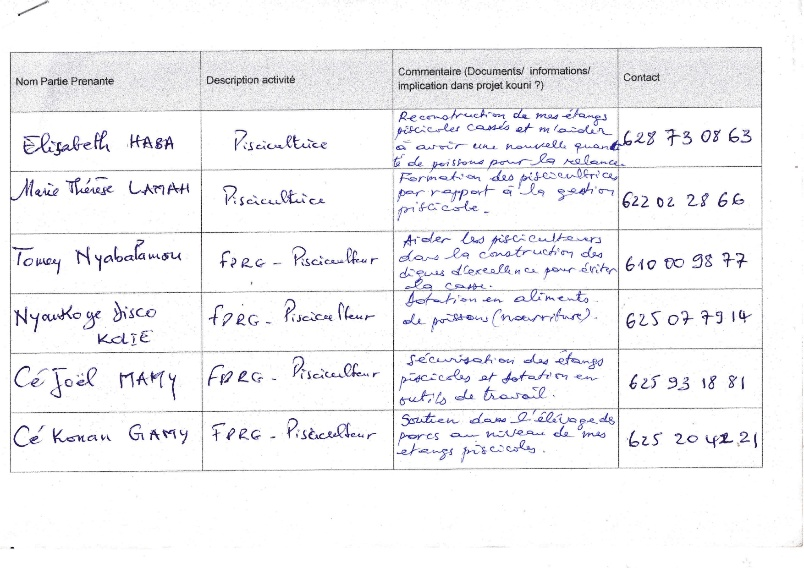 Nom Partie Prenante
Description activité
Commentaire (Documents/ informations/
implication dans projet kouni ?)
Contact
Elisabeth HABA
Piscicultrice
Reconstruction de mes étangs
piscicoles cassés et m'aider
à avoir une nouvelle quanti
té de poissons pour la relance.
628 73 08 63
Marie Thérèse LAMAH
Piscicultrice
Formation des piscicultrices
par rapport à la gestion
piscicole.
622 02 28 66
Tomey Nyabalamou
FPRG - Pisciculteur
Aider les pisciculteurs
dans la construction des
digues d'excellence pour éviter
la casse.
610 00 98 77
Nyankoye Disco
KOLIE
FPRG - Pisciculteur
Dotation en aliments
de poissons (nourriture).
625 07 79 14
Cé Joël MAMY
FPRG - Pisciculteur
Sécurisation des étangs
piscicoles et dotation en
outils de travail.
625 93 18 81
Cé Konan GAMY
FPRG - Pisciculteur
Soutien dans l'élévage des
porcs au niveau de mes
étangs piscicoles.
625 20 42 21